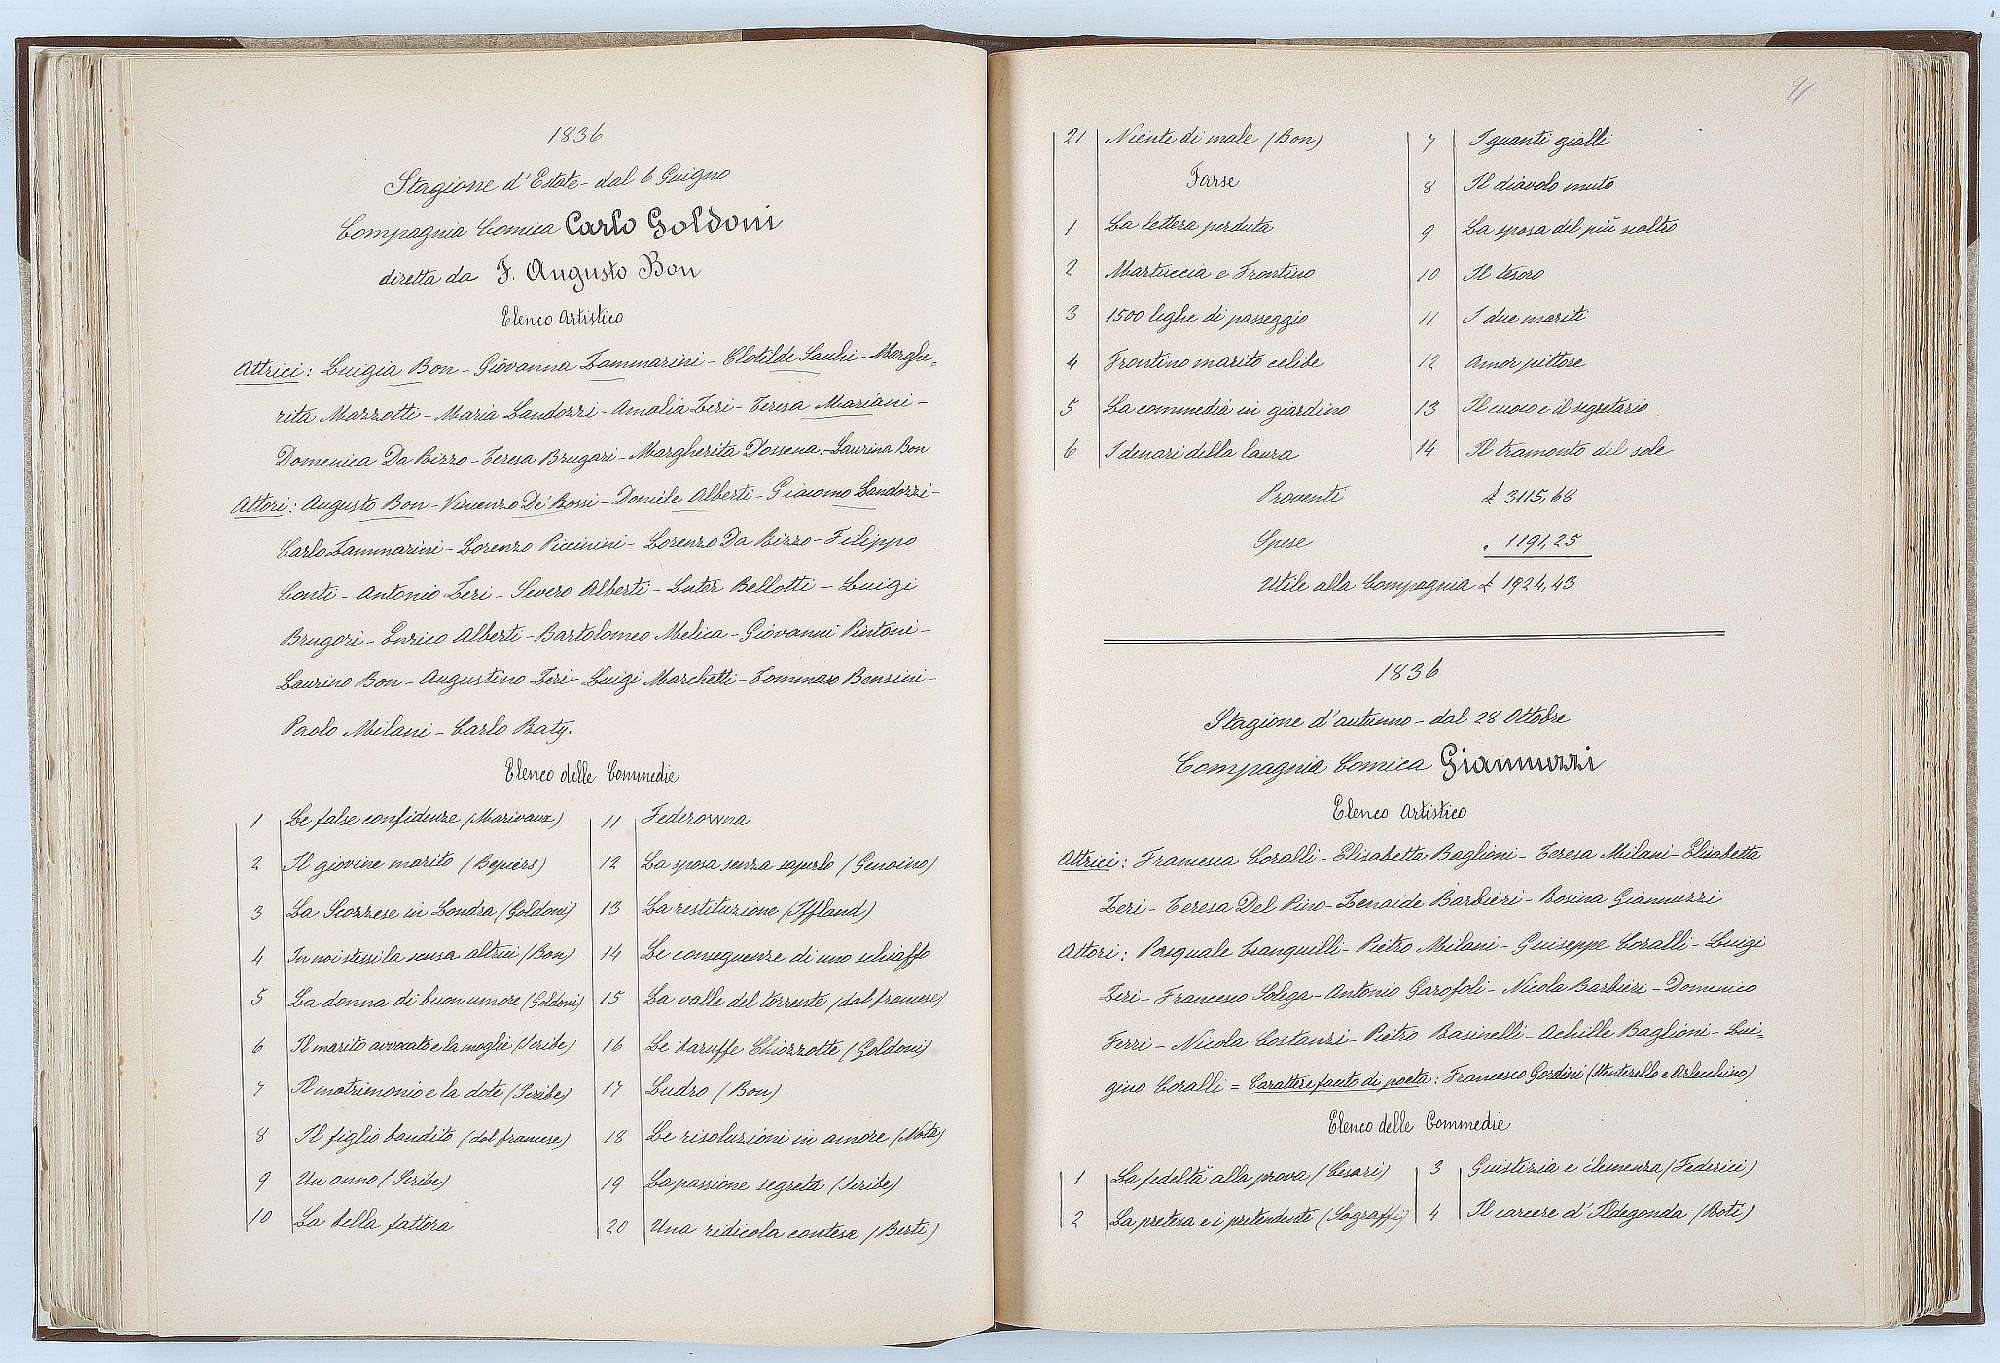 1836
Stagione d'Estate - dal 6 Guigno
Compagnia Comica Carlo Goldoni
diretta da F. Augusto Bon
Elenco Artistico
Attrici: Luigia Bon - Giovanna Zammarini - Clotilde - Marghe=
rita Mazzotti - Maria Landozzi - Amalia Zeri - Teresa Mariani -
Domenica Da Rizzo - Teresa Brugori - Margherita Dossena - Laurina Bon
Attori: Augusto Bon - Vincenzo De' Rossi - Daniele Alberti - Giacomo Landozzi -
Carlo Zammarini - Lorenzo Piccinini - Lorenzo Da Rizzo - Filippo
Conti - Antonio Zeri - Severo Alberti - Luter Bellotti - Luigi
Brugori - Enrico Alberti - Bartolomeo Melica - Giovanni Pintoni -
Laurino Bon - Augustino Zeri - Luigi Marchetti - Tommaso Bensini -
Paolo Milani - Carlo Baty.
Elenco delle Commedie
1 Le false confidenze (Marivaux)
2 Il giovine marito
3 La Scozzese in Londra (Goldoni)
4 In noi stessi la scusa altrui (Bon)
5 La donna di buon umore (Goldoni)
6 Il marito avvocato e la moglie (Scribe)
7 Il matrimonio e la dote (Scribe)
8 Il figlio bandito (dal francese)
9 Un anno (Scribe)
10 La bella fattora
11 Federowna
12 La sposa senza saperlo (Genoino)
13 La restituzione (Iffland)
14 Le conseguenze di uno schiaffo
15 La valle del torrente (dal francese)
16 Le baruffe Chiozzotte (Goldoni)
17 Ludro (Bon)
18 Le risoluzioni in amore (Nota)
19 La passione segreta (Scribe)
20 Una ridicola contesa (Berti)
21 Niente di male (Bon)
Farse
1 La lettera perduta
2 Martuccia e Frontino
3 1500 leghe di passeggio
4 Frontino marito celibe
5 La commedia in giardino
6 I denari della laura
7 I guanti gialli
8 Il diavolo muto
9 La sposa del più scaltro
10 Il tesoro
11 I due mariti
12 Amor pittore
13 Il cuoco e il segretario
14 Il tramonto del sole
Proventi £ 3115,68
Spese " 1191,25
Utile alla Compagnia £ 1924,43
1836
Stagione d'autunno - dal 28 Ottobre
Compagnia Comica Giannuzzi
Elenco Artistico
Attrici: Francesca Coralli - Elisabetta Baglioni - Teresa Milani - Elisabetta
Zeri - Teresa Del Pino - Zenaide Barbieri - Rosina Giannuzzi
Attori: Pasquale Tranquilli - Pietro Milani - Guiseppe Coralli - Luigi
Zeri - Francesco Solega - Antonio Garofoli - Nicola Barbieri - Domenico
Ferri - Nicola Costanzi - Pietro Basinelli - Achille Baglioni - Lui-
gino Coralli = Carattere faceto di poeta: Francesco Gordini (Menterello e Arlecchino)
Elenco delle Commedie
1 La fedeltà alla prova (Cesari)
2 La pretesa e i pretendente (Sograffi)
3 Guistizia e clemenza (Federici)
4 Il carcere d'Ildegonda (Roti)